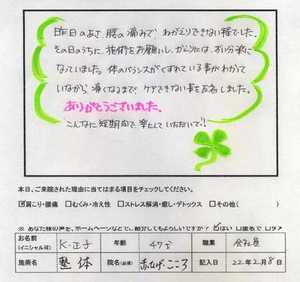 昨日のあさ、腰の痛みで、ねがえりできない程でした。
その日のうちに施術をお願いし、かなりには、すい分楽に
なっていました。体のバランスがくずれている事がわかって
いながら、痛くなるまで、ケアできない私を
ありがとうございました。
こんなに短期間で楽にしていただいて!
本日、ご来院された理由に当てはまる項目をチェックしてください。
☑肩こり・腰痛 □むくみ・冷え性 □ストレス解消・癒し・デトックス □その他( )
※あなた様の声を、ホームページなどで、紹介してもよろしいですか? はい □匿名で □ダメ
お名前(イニシャル可) K・正子 年齢 47才 職業 会社員
施術名 整体 院名(必須) 赤ひげ・こころ 記入日 22年2月8日